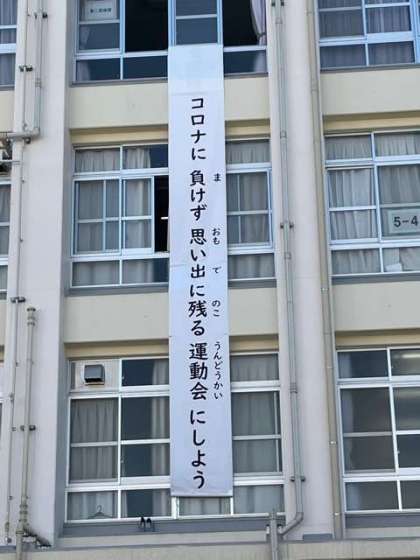 コロナに 負けず 思い出に残る 運動会 にしよう
ま
おも
で
のこ
うんどうかい
5-4